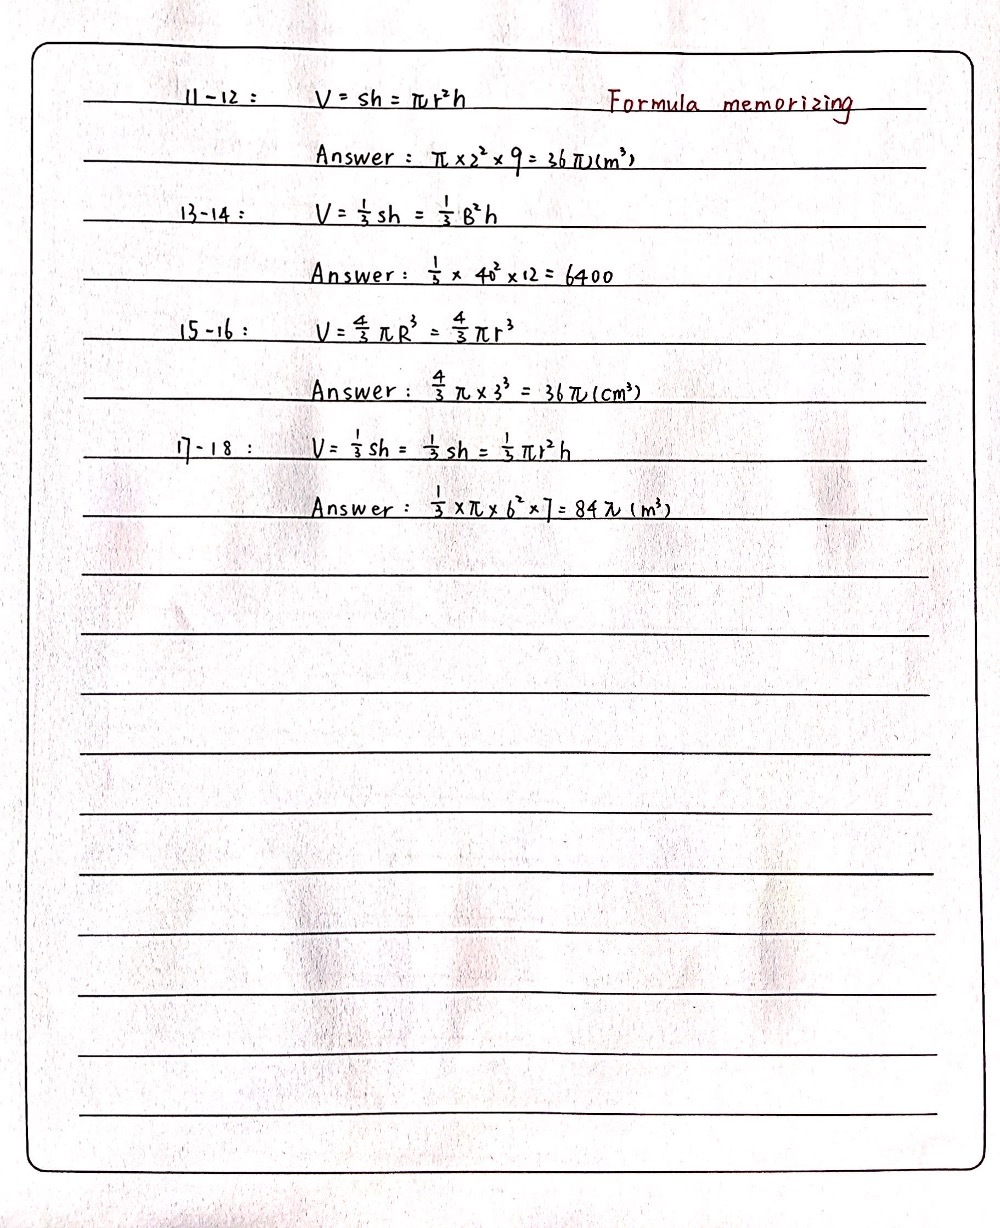 11-12: V = sh = πr²h Formula memorizing
Answer: π×2²×9=36π(m³)
13-14: V = 1/3 sh = 1/3 B²h
Answer: 1/3 × 40² ×12 = 6400
15-16: V = 4/3 πR³ = 4/3 πr³
Answer: 4/3 π × 3³ = 36π(cm³)
17-18: V = 1/3 sh = 1/3 sh = 1/3 πr²h
Answer: 1/3 ×π× 6² ×7 = 84π (m³)